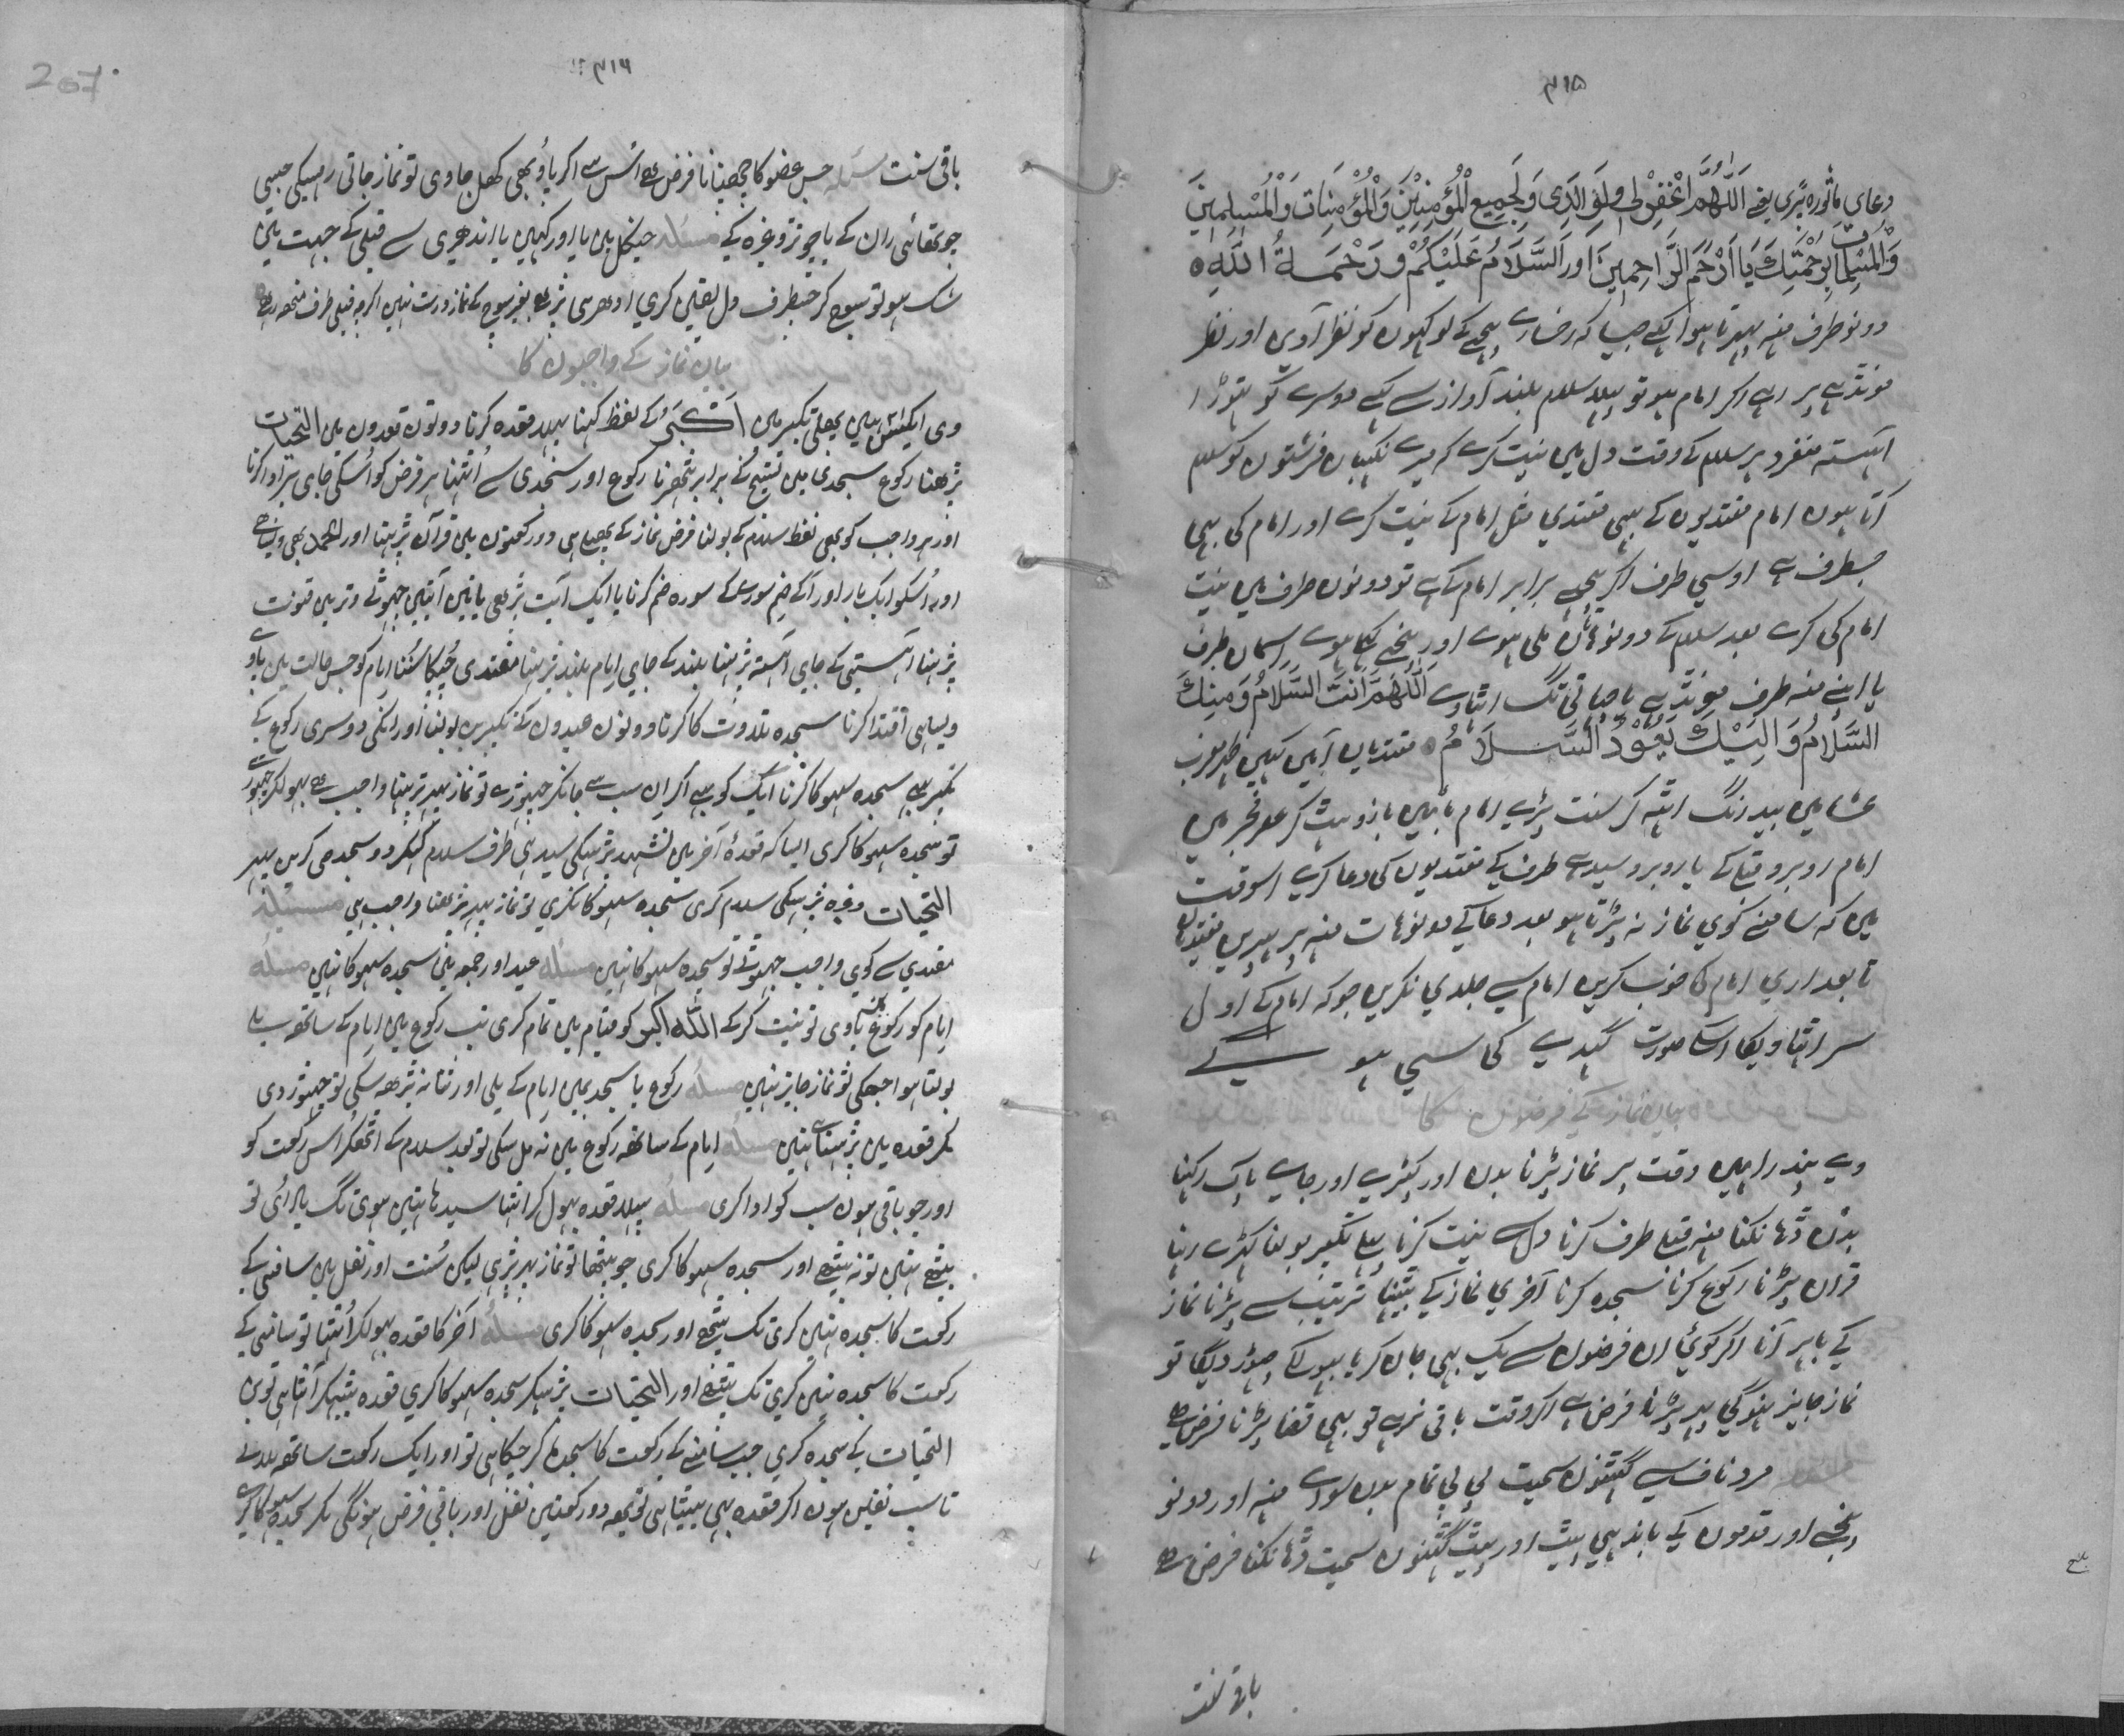 ۴۱۵
دعای ماثورہ پڑی یعنے اَللّٰهُمَّ اغْفِرْلِی وَلِوَالِدَیَّ وَلِجَمِیعِ الْمُؤْمِنِیْنَ وَالْمُؤْمِنَاتِ وَالْمُسْلِمِیْنَ
وَالْمُسْلِمَاتِ بِرَحْمَتِكَ یَا اَرْحَمَ الرَّاحِمِیْنَ اور اَلسَّلَامُ عَلَیْكُمْ وَرَحْمَةُ اللّٰهِ
دونو طرف منہ پہرتا ہوا کہے جیسا کہ رخسارے پیچھے کے لوکہوں کو نظر آوے اور نظر
مونڈہے پر رہے اکر امام ہو تو پہلا سلام بلند آواز سے کہے دوسرے کو تہوڑا
اہستہ منفرد ہر سلام کے وقت دل میں نیت کرے کہ میرے نکہبان فرشتوں کو سلام
کرتا ہوں امام مقتدیوں کے بہی مقتدی مثل امام کے نیت کرے اور امام کی بہی
جسطرف ہے اوسی طرف اکر پیچھے برابر امام کے ہے تو دونوں طرف میں نیت
امام کی کرے بعد سلام کے دونو ہات ملی ہوے اور پنجے کہلے ہوے اسمان طرف
یا اپنے منہ طرف مونڈہے یا چہاتی تک اٹہاوے اَللّٰهُمَّ اَنْتَ السَّلَامُ وَمِنْكَ
السَّلَامُ وَاِلَیْكَ یَعُوْدُ السَّلَامُ مقتدیاں آمیں کہیں ظہر مغرب
عشا میں بیدرنگ اٹہہ کر سنت پڑے امام بائیں بازو ہٹ کر عصر فجر میں
امام روبرو قبلے کے یا روبرو سیدہے طرف کے مقتدیوں کی دعا کرے اسوقت
میں کہ سامنے کوی نماز نہ پڑتا ہو بعد دعا کے دونو ہات منہ پر پہریں مقتدیاں
تابعداری امام کی خوب کریں امام سے جلدی نکریں جو کہ امام کے اول
سر اٹہاویگا اسکا صورت گیدے کی سی ہو
بیان نماز کے فرضوں کا
وے پندرا ہیں وقت پر نماز پڑنا بدن اور کپڑے اور جاے پاک رکہنا
بدن ڈہانکنا منہ قبلے طرف کرنا دل سے نیت کرنا پہلے تکبیر بولنا کہڑے رہنا
قران پڑنا رکوع کرنا سجدہ کرنا آخری نماز کے بیٹہنا ترتیب سے پڑنا نماز
کے باہر آنا اکر کوئی ان فرضوں سے یک بہی جان کر یا بہول کے چہوڑ دیگا تو
نماز جایز نہوگی پہر پڑنا فرض ہے اکر وقت باقی نرہے تو بہی قضا پڑنا فرض ہے
مسئلہ مرد ناف سے گہٹنوں سمیت بی بی تمام بدن سواے منہ اور دونو
پنجے اور قدموں کے باندہی پیٹ اور پیٹہ گہٹنوں سمیت ڈہانکنا فرض ہے
باقی سنت
۴۱۶
باقی سنت مسئلہ جس عضو کا چھپانا فرض ہے اس سے اکر پاؤ بھی کھل جاوی تو نماز جاتی رہیکی جیسی
چوتھائی ران کے یا چوتڑ وغیرہ کے مسئلہ جنکل میں یا اور کہیں یا اندھیری سے قبلے کے جہت میں
شک ہو تو سوچ کر جسطرف دل یقین کری اودھر ہی پڑے بغیر سوچ کے نماز درست نہیں اکرچہ قبلی طرف منھہ رہے
بیان نماز کے واجبوں کا
وی ایکیس ہیں پھلی تکبیر میں اَكْبَرُ کے لفظ کہنا پہلا قعدہ کرنا دونوں قعدوں میں التحیات
پڑھنا رکوع سجدی میں تسبیح کے برابر ٹھرنا رکوع اور سجدی سے اٹہنا ہر فرض کو اسکی جای پر ادا کرنا
اور ہر واجب کو بھی لفظ سلام کے بولنا فرض نماز کے پھیلی ہی دو رکعتوں میں قرآن پڑہنا اور الحمد بھی ویساہی
اور اسکو ایکبار اور اگے ضم سوری کے سورہ ضم کرنا یا ایک آیت بڑھی یا تین آیتیں چہوٹے وتر میں قنوت
پڑہنا اہستی کے جای آہستہ پڑہنا بلند کے جای امام بلند پڑہنا مقتدی چپکا سننا امام کو جس حالت میں پاوے
ویساہی اقتدا کرنا سجدہ تلاوت کا کرنا دونوں عیدوں کے تکبیریں بولنا اور انکی دوسری رکوع کے
تکبیر بہی سجدہ سہو کا کرنا ایک کو بہی اکر ان سب سے جانکر چہوڑے تو نماز پہر پڑہنا واجب ہے بہولکر چہوڑے
تو سجدہ سہو کا کری ایسا کہ قعدۂ آخر میں تشہد پڑہیکی سیدہی طرف سلام کہکر دو سجدی کریں پہر
التحیات وغیرہ پڑہیکی سلام کری سجدہ سہو کا نکری تو نماز پہر پڑھنا واجب ہی مسئلہ
مقتدی سے کوی واجب چہوٹے تو سجدہ سہو کا نہیں مسئلہ عید اور جمعہ میں سجدہ سہو کا نہیں مسئلہ
امام کو رکوع میں پاوی تو نیت کر کے اللّٰہ اکبر کو قیام میں تمام کری تب رکوع میں امام کے ساتھہ ملے
بولتا ہوا جھکی تو نماز جایز نہیں مسئلہ رکوع یا سجد میں امام کے ملی اور ثنا نہ پڑھہ سکی تو چہوڑ دی
مکر قعدہ میں پڑہناہی نہیں مسئلہ امام کے ساتھہ رکوع میں نہ مل سکی تو بعد سلام کے اٹھکر اس رکعت کو
اور جو باقی ہوں سب کو ادا کری مسئلہ پہلا قعدہ بہول کر اٹہا سیدہا نہیں ہوی تگ یاد آئی تو
بیٹھے نہیں تو نہ بیٹھے اور سجدہ سہو کا کری جو بیٹھا تو نماز پہر پڑی لیکن سنت اور نفل میں سامنی کے
رکعت کا سجدہ نہیں کری تک بیٹھے اور سجدہ سہو کا کری مسئلہ آخر کا قعدہ بہولکر اٹہا تو سامنی کے
رکعت کا سجدہ نہیں کری تک بیٹھے اور التحیات پڑہکر سجدہ سہو کا کری قعدہ بیٹہکر اٹہا ہی تو بن
التحیات کے سجدہ کری جب سامنے کے رکعت کا سجدہ کر چکا ہی تو اور ایک رکعت ساتھہ ملاے
تا سب نفلیں ہوں اکر قعدہ بہی بیٹہا ہی تو یہہ دو رکعتیں نفل اور باقی فرض ہونگی مکر سجدہ سہو کا کرے
267